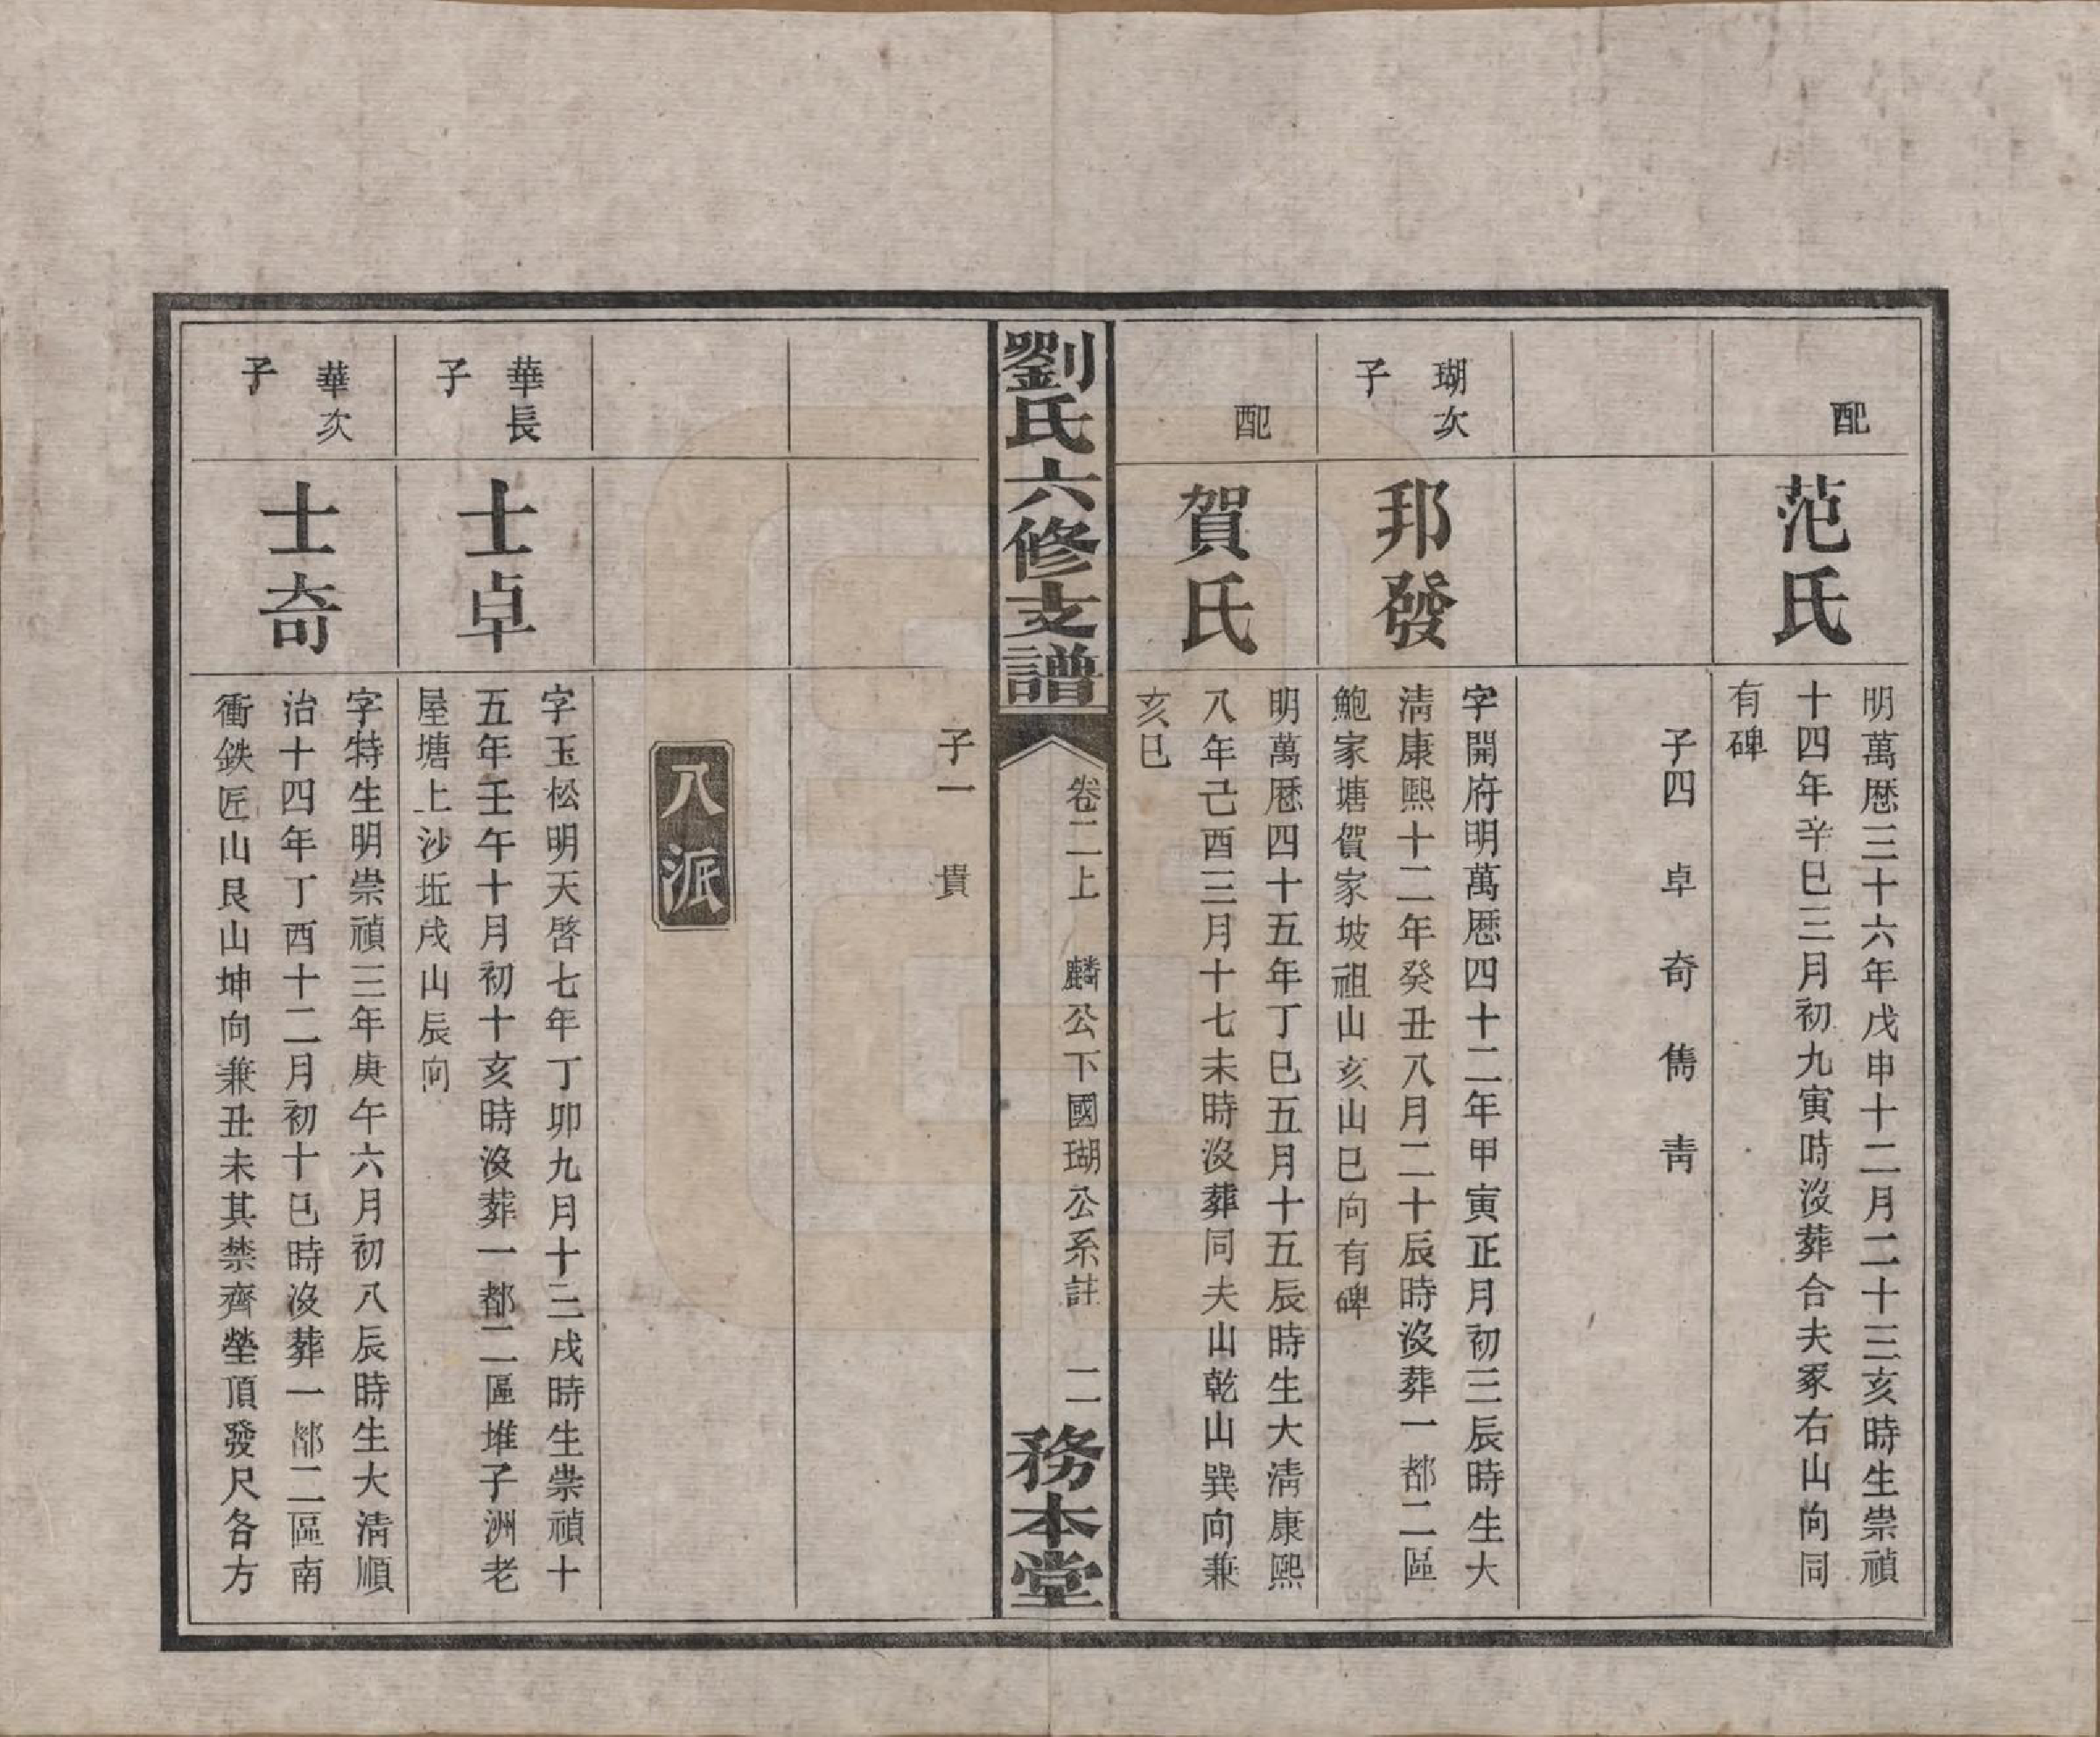 配
范氏
明萬厯三十六年戊申十二月二十三亥時生崇禎
十四年辛巳三月初九寅時沒葬合夫冢右山向同
有碑
子四　卓　奇　雋　靑
瑚次
子
邦發
字開府明萬厯四十二年甲寅正月初三辰時生大
淸康熙十二年癸丑八月二十辰時沒葬一都二區
鮑家塘賀家坡祖山亥山巳向有碑
配
賀氏
明萬厯四十五年丁巳五月十五辰時生大淸康熙
八年己酉三月十七未時沒葬同夫山乾山巽向兼
亥巳
劉氏六修支譜
卷二上　麟公下國瑚公系註　二
務本堂
子一　貴
八派
華長
子
士卓
字玉松明天啓七年丁卯九月十三戌時生崇禎十
五年壬午十月初十亥時沒葬一都二區堆子洲老
屋塘上沙坵戌山辰向
華次
子
士奇
字特生明崇禎三年庚午六月初八辰時生大淸順
治十四年丁酉十二月初十巳時沒葬一都二區南
衝鉄匠山艮山坤向兼丑未其禁齊塋頂發尺各方